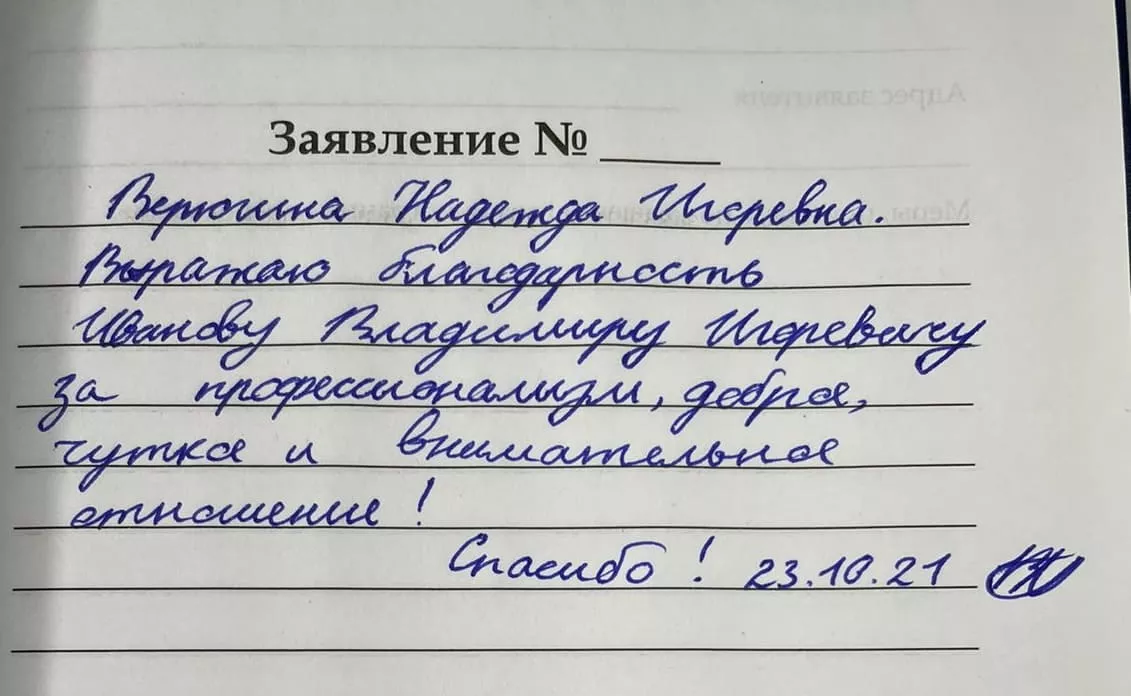 Адрес заявителя
Заявление № _____
Надежда Игоревна.
Выражаю благодарность
Иванову Владимиру Игоревичу
за профессионализм, доброе,
чуткое и внимательное
отношение!
Спасибо! 23.10.21